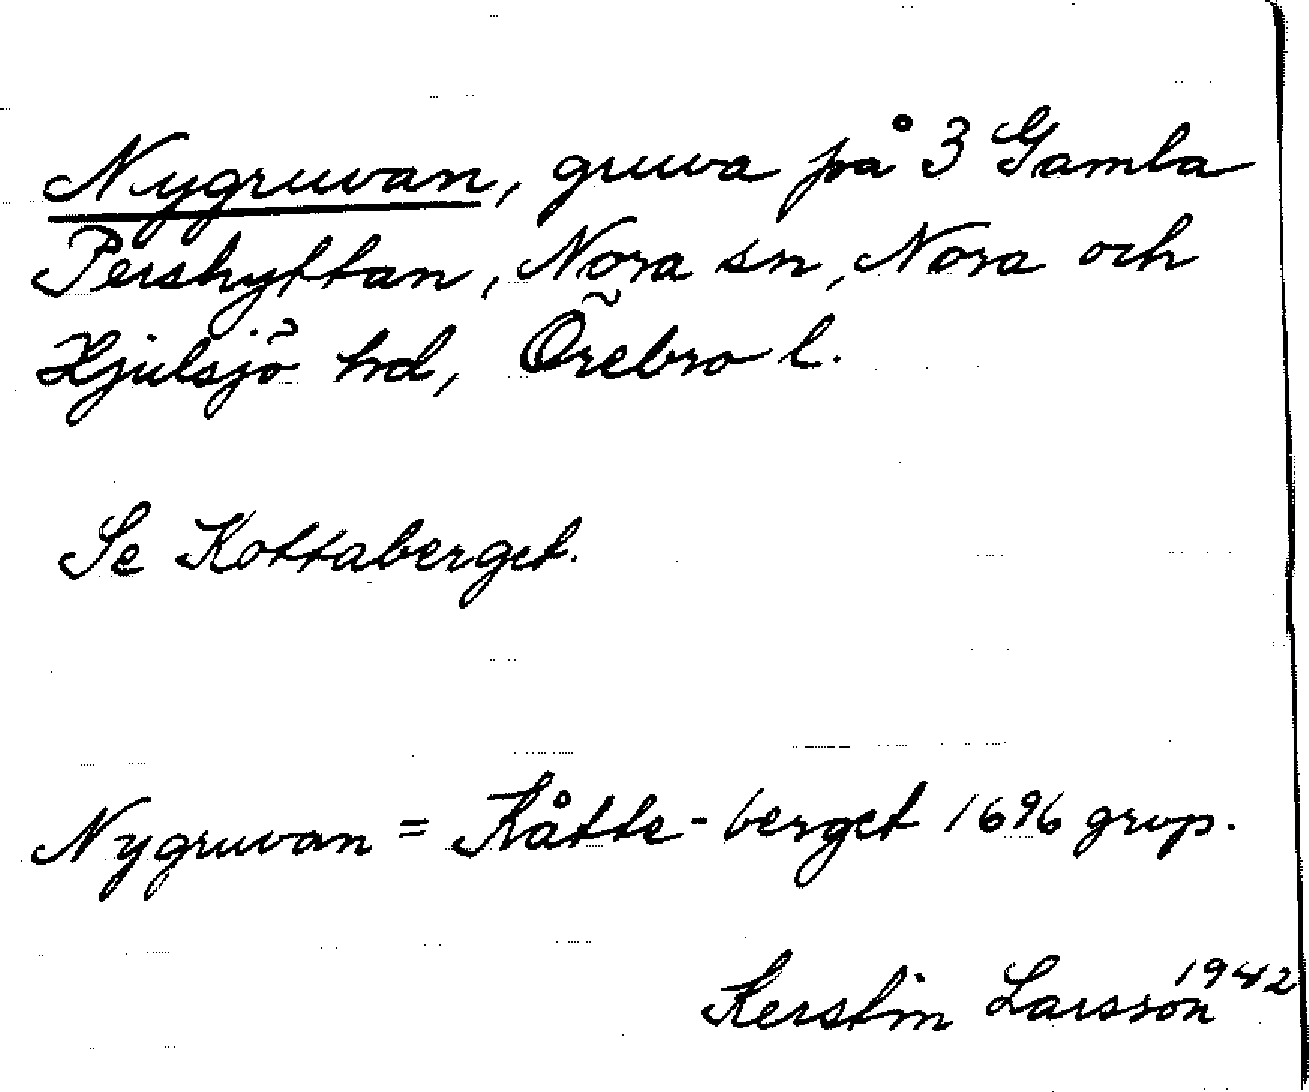 Nygruvan, gruva på 3 Gamla
Pershyttan, Nora sn, Nora och
Hjulsjö hd, Örebro l.
Se Kottaberget.
Nygruvan = Kåtte-berget 1696 grvp.
Kerstin Larsson 1942